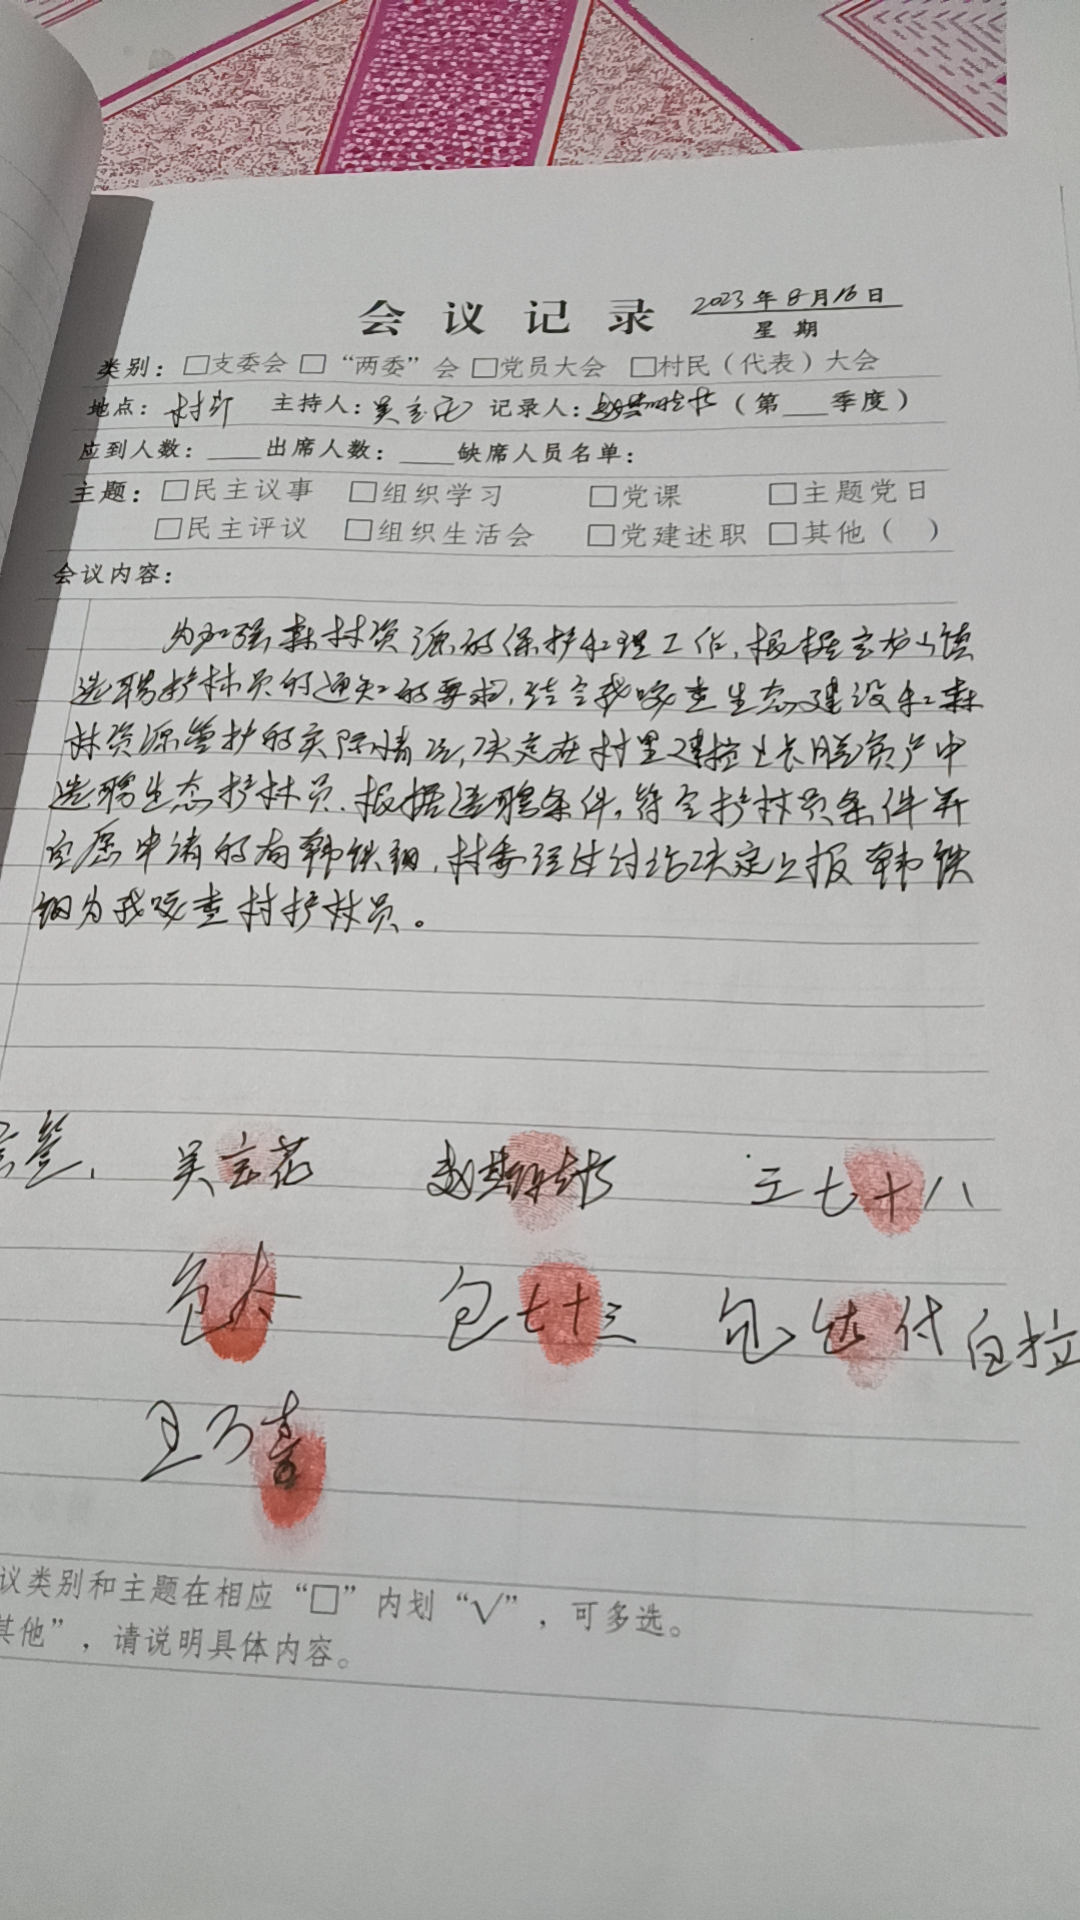 会议记录 2023年8月16日
星期
类别：□支委会 □“两委”会 □党员大会 □村民（代表）大会
地点：村部 主持人：吴宝花 记录人：赵 （第___季度）
应到人数：____出席人数：____缺席人员名单：
主题：□民主议事 □组织学习 □党课 □主题党日
□民主评议 □组织生活会 □党建述职 □其他（ ）
会议内容：
为加强森林资源的保护和理工作，根据
选聘护林员的通知的要求，结合我咬查生态建设和森
林资源管护的实际情况，决定在村里建档立卡脱贫户中
选聘生态护林员，根据选聘条件，符合护林员条件并
自愿申请的有韩铁钢，村委经过讨论决定上报韩铁
钢为我咬查村护林员。
签， 吴宝花 赵 王七十八
包六 包七十三 包 付白拉
王乃喜
议类别和主题在相应“□”内划“√”，可多选。
其他”，请说明具体内容。